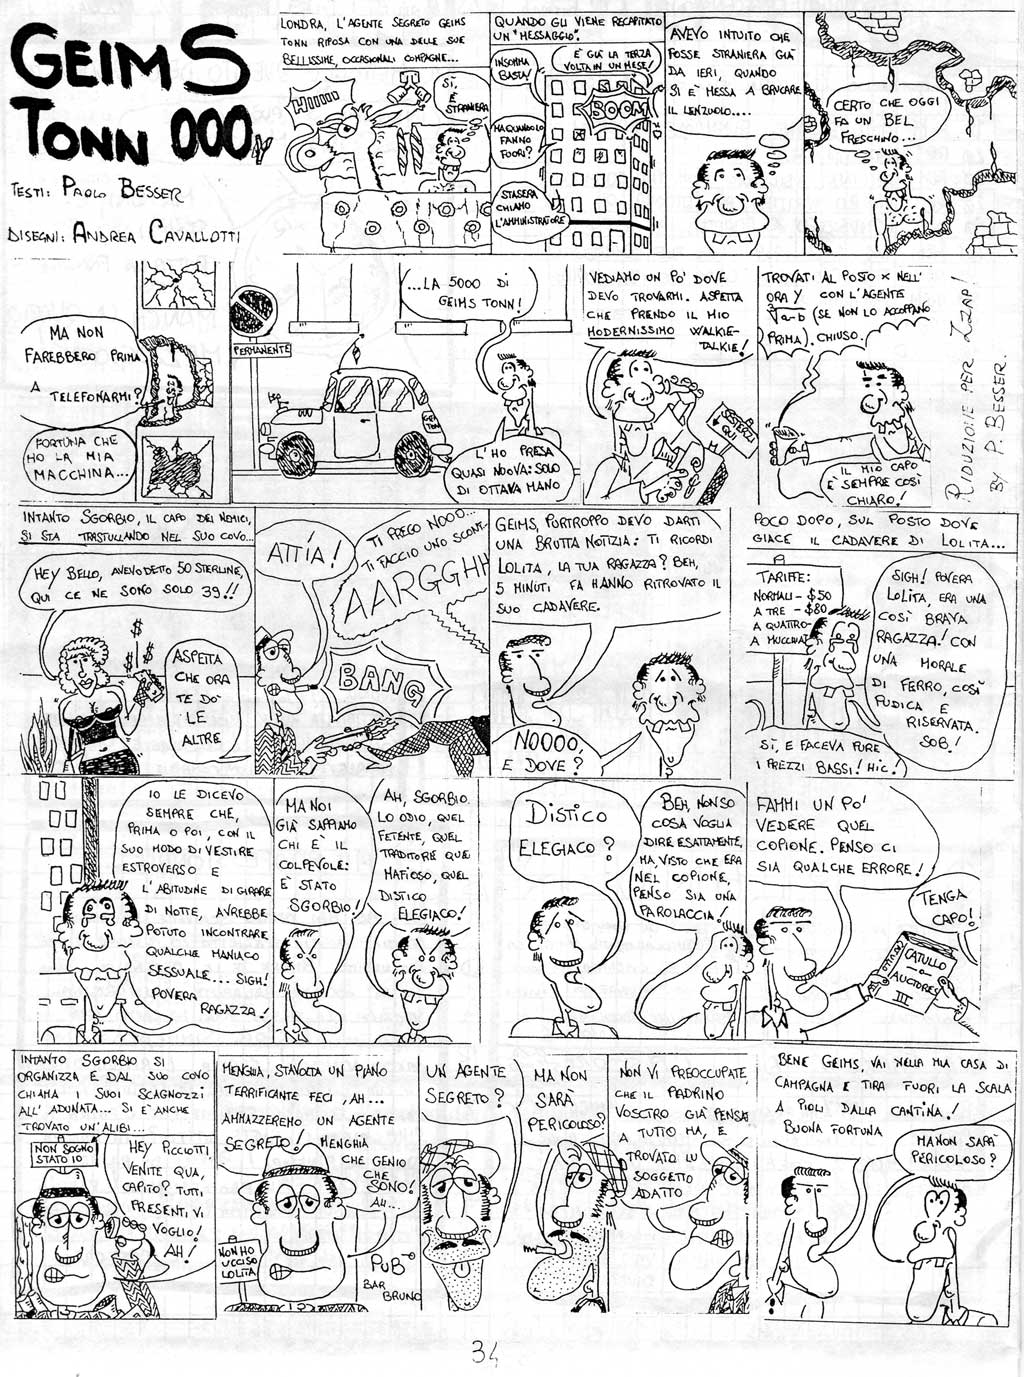 GEIMS
TONN 000
TESTI: PAOLO BESSER
DISEGNI: ANDREA CAVALLOTTI
LONDRA, L'AGENTE SEGRETO GEIMS
TONN RIPOSA CON UNA DELLE SUE
BELLISSIME, OCCASIONALI COMPAGNE...
HIIIIII
SI,
È
STRANIERA
QUANDO GLI VIENE RECAPITATO
UN "MESSAGGIO".
INSOMMA
BASTA!
È GIÀ LA TERZA
VOLTA IN UN MESE!
BOOM
MA QUANDO LO
FANNO
FUORI?
STASERA
CHIAMO
L'AMMINISTRATORE
AVEVO INTUITO CHE
FOSSE STRANIERA GIÀ
DA IERI, QUANDO
SI E' MESSA A BRUCARE
IL LENZUOLO....
CERTO CHE OGGI
FA UN BEL
FRESCHINO...
MA NON
FAREBBERO PRIMA
A
TELEFONARMI?
FORTUNA CHE
HO LA MIA
MACCHINA...
PERMANENTE
...LA 5000 DI
GEIMS TONN!
L'HO PRESA
QUASI NUOVA: SOLO
DI OTTAVA MANO
VEDIAMO UN PO' DOVE
DEVO TROVARMI. ASPETTA
CHE PRENDO IL MIO
MODERNISSIMO WALKIE-
TALKIE!
QUI
TROVATI AL POSTO X NELL'
ORA Y CON L'AGENTE
√a-b (SE NON LO ACCOPPANO
PRIMA). CHIUSO.
IL MIO CAPO
E' SEMPRE COSÌ
CHIARO!
RIDUZIONE PER ZZAP!
BY P. BESSER.
INTANTO SGORBIO, IL CAPO DEI NEMICI,
SI STA TRASTULLANDO NEL SUO COVO...
HEY BELLO, AVEVO DETTO 50 STERLINE,
QUI CE NE SONO SOLO 39!!
$ $ $
ASPETTA
CHE ORA
TE DO'
LE
ALTRE
ATTÍA!
TI PREGO NOOO...
TI FACCIO UNO SCONT-
AARGGHH
BANG
GEIMS, PURTROPPO DEVO DARTI
UNA BRUTTA NOTIZIA: TI RICORDI
LOLITA, LA TUA RAGAZZA? BEH,
5 MINUTI FA HANNO RITROVATO IL
SUO CADAVERE.
NOOOO,
E DOVE?
POCO DOPO, SUL POSTO DOVE
GIACE IL CADAVERE DI LOLITA...
TARIFFE:
NORMALI - $50
A TRE - $80
A QUATTRO-
A MUCCHIATA
SIGH! POVERA
LOLITA, ERA UNA
COSÌ BRAVA
RAGAZZA! CON
UNA MORALE
DI FERRO, COSÌ
PUDICA E
RISERVATA.
SOB!
SÌ, E FACEVA PURE
I PREZZI BASSI! HIC!
IO LE DICEVO
SEMPRE CHE,
PRIMA O POI, CON IL
SUO MODO DI VESTIRE
ESTROVERSO E
L'ABITUDINE DI GIRARE
DI NOTTE, AVREBBE
POTUTO INCONTRARE
QUALCHE MANIACO
SESSUALE... SIGH!
POVERA
RAGAZZA!
MA NOI
GIÀ SAPPIAMO
CHI E' IL
COLPEVOLE:
È STATO
SGORBIO!
AH, SGORBIO.
LO ODIO, QUEL
FETENTE, QUEL
TRADITORE QUE
MAFIOSO, QUEL
DISTICO
ELEGIACO!
DISTICO
ELEGIACO?
BEH, NON SO
COSA VOGLIA
DIRE ESATTAMENTE,
MA, VISTO CHE ERA
NEL COPIONE,
PENSO SIA UNA
PAROLACCIA!
FAMMI UN PO'
VEDERE QUEL
COPIONE. PENSO CI
SIA QUALCHE ERRORE!
TENGA
CAPO!
CATULLO
AUCTORES
III
INTANTO SGORBIO SI
ORGANIZZA E DAL SUO COVO
CHIAMA I SUOI SCAGNOZZI
ALL'ADUNATA... SI E' ANCHE
TROVATO UN'ALIBI...
NON SOGNO
STATO IO
HEY PICCIOTTI,
VENITE QUA,
CAPITO? TUTTI
PRESENTI VI
VOGLIO!
AH!
MENGHIA, STAVOLTA UN PIANO
TERRIFICANTE FECI, AH...
AMMAZZEREMO UN AGENTE
SEGRETO!
MENGHIA
CHE GENIO
CHE
SONO!
AH...
NON HO
UCCISO
LOLITA
PUB
BAR
BRUNO
UN AGENTE
SEGRETO?
MA NON
SARÀ
PERICOLOSO?
NON VI PREOCCUPATE,
CHE IL PADRINO
VOSCTRO GIÀ PENSA
A TUTTO MA, E
TROVATO LU
SOGGETTO
ADATTO
BENE GEIMS, VAI NELLA MIA CASA DI
CAMPAGNA E TIRA FUORI LA SCALA
A PIOLI DALLA CANTINA!
BUONA FORTUNA
MA NON SARÀ
PERICOLOSO?
34